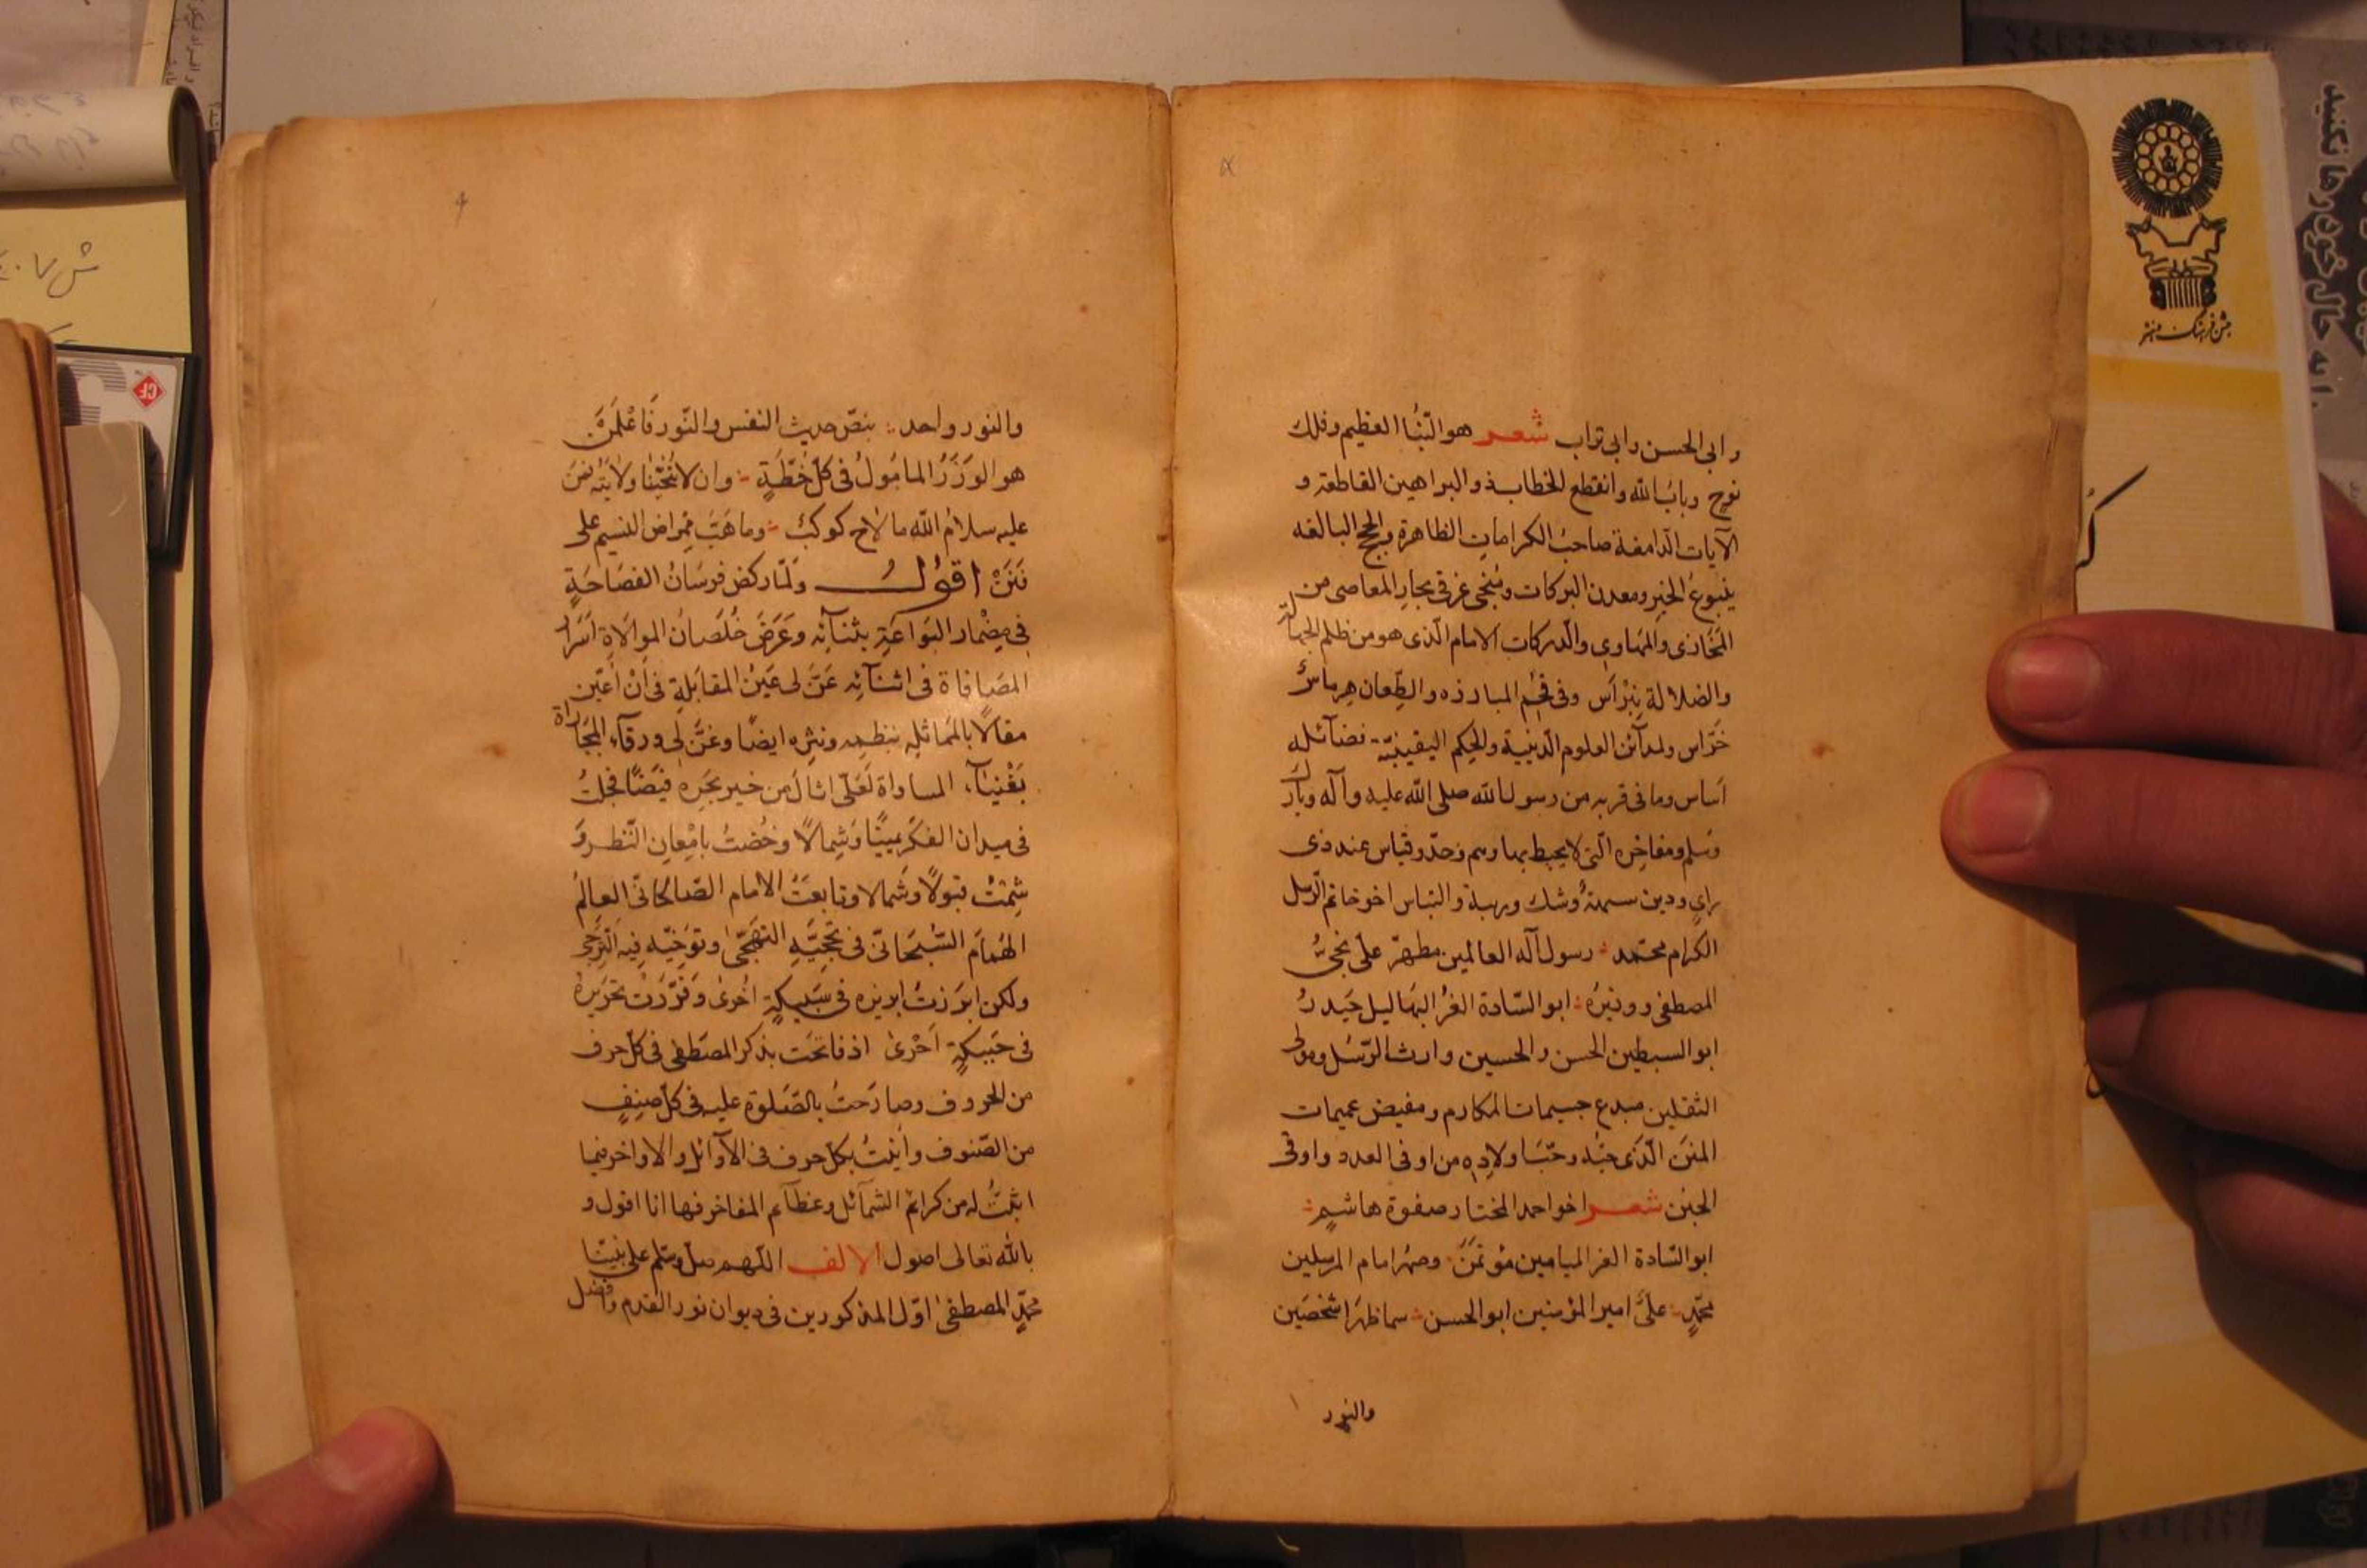 وابى الحسن وابى تراب شعر هو النّبأ العظيم وفلك
نوح وباب الله وانقطع الخطاب والبراهين القاطعة و
الآيات الدامغة صاحب الكرامات الظاهرة والحجج البالغه
ينبوع الخير ومعدن البركات ومنجى غرقى بحار المعاصى من
المخازى والمهاوى والدركات الامام الّذى هو من ظلم الجهالة
والضلالة نبراس وفى قحم المبارزه والطّعان هرماس
خرّاس ولمدآئن العلوم الّدينية والحكم اليقينيّة فضآئله
اساس وما فى قربه من رسول الله صلى الله عليه وآله وبارك
وسلم ومفاخره الّتى لا يحيط بها وهم وحدّ وقياس عند ذى
راى ودين سمة وشك وريبة والتباس اخو خاتم الرّسل
الكرام محمّد رسول آله العالمين مطهّر علىّ نجىّ
المصطفى ووزيره ابو السّادة الغرّ البهاليل حيدر
ابو السبطين الحسن والحسين وارث الرّسل ومولى
الثقلين مبدع جسيمات المكارم ومفيض عميمات
المنن الّذى حبّه وحبّ اولاده من اوفى العدد واوقى
الجنن شعر اخو احمد المختار صفوة هاشم
ابو السّادة الغر الميامين مؤتمن وصهر امام المرسلين
محمّد علىّ امير المؤمنين ابو الحسن سما ظهرا شخصين
والنور
والنور واحد بنصّ حديث النفس والنّور فاعلمن
هو الوزر المامول فى كلّ خطّة وان لا تنجّينا ولايته فمن
عليه سلام الله ما لاح كوكب وما هبّ ممراض النسيم على
فنن اقول ولمّا ركض فرسان الفصاحة
فى مضمار البراعة بثنآئه وعرض خلصان الموالاة اسرار
المصافاة فى اثنآئه عنّ لى عين المقابلة فى ان اعيّن
مقالا بالمماثله بنظمه ونثره ايضا وغنّ لى ورقآء المجاراة
بغنآء المساواة لعلّى انال من خير بحره فيضا فجلت
فى ميدان الفكر يمينا وشمالا وخضت بامعان النّظر و
شمت قبولا وشمالا وتابعت الامام الصّالحانى العالم
الهمام السّبحانىّ فى تحجّيه التهجّى وتوخّيه فيه التّرجّى
ولكن ابرزت ابريزه فى سبيكة اخرى وقرّرت تحريره
فى حبيكة احرى اذ فاتحت بذكر المصطفى فى كلّ حرف
من الحروف وصارحت بالصّلوة عليه فى كلّ صنف
من الصّنوف واتيت بكلّ حرف فى الآوائل والاواخر فيما
اثبتّ له من كرائم الشمآئل وعظآئم المفاخر فها انا اقول و
بالله تعالى اصول الالف اللّهم صلّ وسلّم على نبيّنا
محمّد المصطفى اوّل المذكورين فى ديوان نور القدم وافضل
جشن فرهنگ و هنر